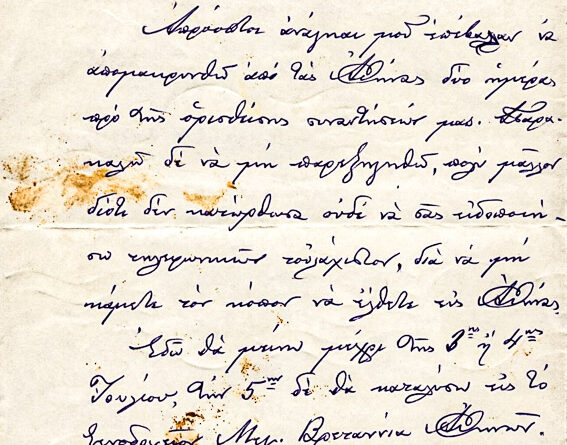 Ἀπρόοπτοι ἀνάγκαι μοῦ ἐπέβαλαν νὰ
ἀπομακρυνθῶ ἀπὸ τὰς Ἀθήνας δύο ἡμέρας
πρὸ τῆς ὁρισθείσης συναντήσεώς μας. Παρα-
καλῶ δὲ νὰ μὴ παρεξηγηθῶ, πολὺ μᾶλλον
διότι δὲν κατώρθωσα οὐδὲ νὰ σᾶς εἰδοποιή-
σω τηλεφωνικῶς τοὐλάχιστον, διὰ νὰ μὴ
κάμετε τὸν κόπον νὰ ἔλθετε εἰς Ἀθήνας.
Ἐδῶ θὰ μείνω μέχρι τῆς 3ης ἢ 4ης
Ἰουλίου, τὴν 5ην δὲ θὰ καταλύσω εἰς τὸ
ξενοδοχεῖον Μεγ. Βρεταννία Ἀθηνῶν.